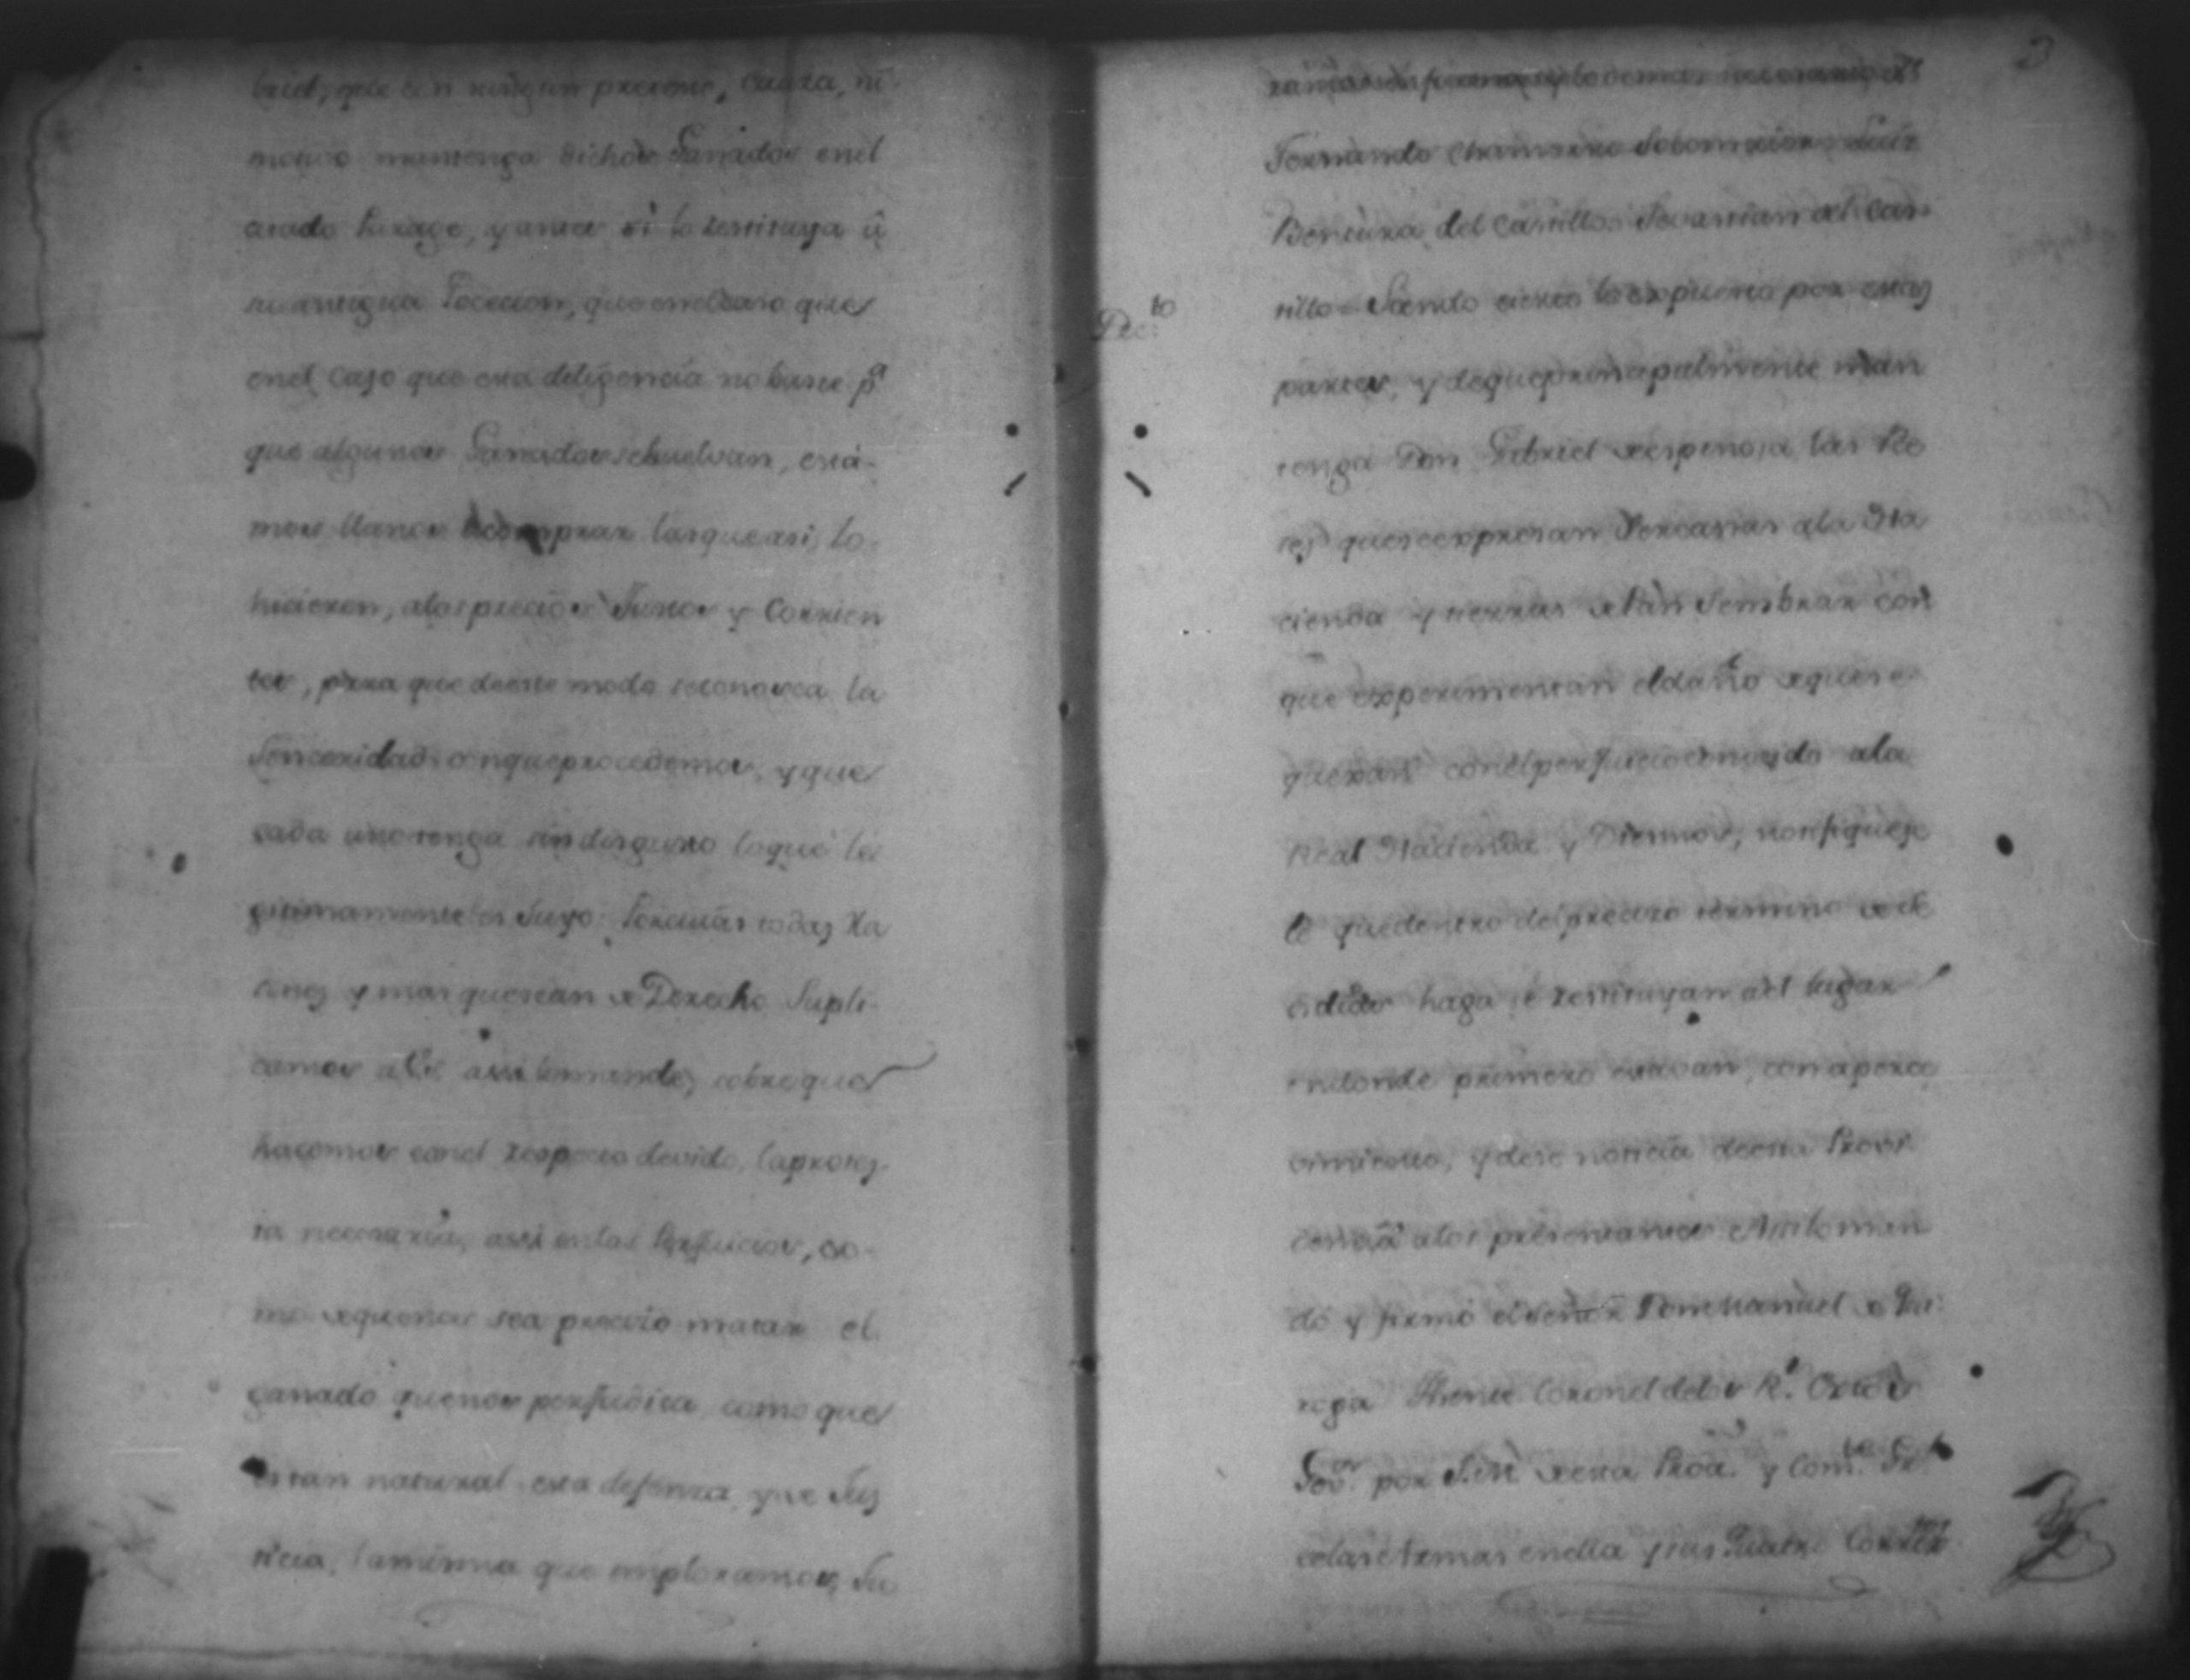 briel, que con ningun pretexto, causa, ni
motivo mantenga dichos Ganados en el
citado Parage, y antes si lo restituya â
su antigua Pocecion, que en el caso que
en el Caso que esta diligencia no baste p.ª
que algunos Ganados se buelvan, esta-
mos llanos a comprar las que asi lo
hicieren, a los precios Justos y Corrien
tes, para que de este modo se conosca la
Sinceridad con que procedemos, y que
cada uno tenga sin disgusto lo que le
gitimamente es Suyo. Por cuias todas Ra
cones y mas que sean de Derecho Supli-
camos a V. assi lo mande, sobre que
hacemos con el respecto devido, la protes-
ta necesaria, assi en las Perjuicios, co-
mo de que nos sea preciso matar el
ganado que nos perjudica, como que
es tan natural esta defenza, y de Jus
ticia, la misma que imploramos, Ju
3
ramos en forma y lo demas necesario etª
Fernando Chamorro Sotomaior
Bentura del Castillo Sevastian del Cas
tillo = Dec.to Siendo cierto lo expuesto por estas
partes, y de que principalmente man
tenga Don Gabriel de espinosa las Re
ses que se expresan Sercanas a la Ha
cienda y tierras de Pan Sembrar con
que experimentan el daño de que se
quexan con el perjuicio conosydo a la
Real Hacienda y Diesmos, notifiquese
le que dentro del preciso termino de
dias haga se restituyan a el lugar
en donde primero estavan, con aperce
vimiento, y dese noticia de esta Provi
dencia a los presentantes. Assi lo man
dó y firmó el señor Don Manuel de
roga Thente. Coronel de los R.s Extos
Gov.or por S.M. de esta Proa. y Com.te
de las Armas en ella y sus Quatro Corr.tos